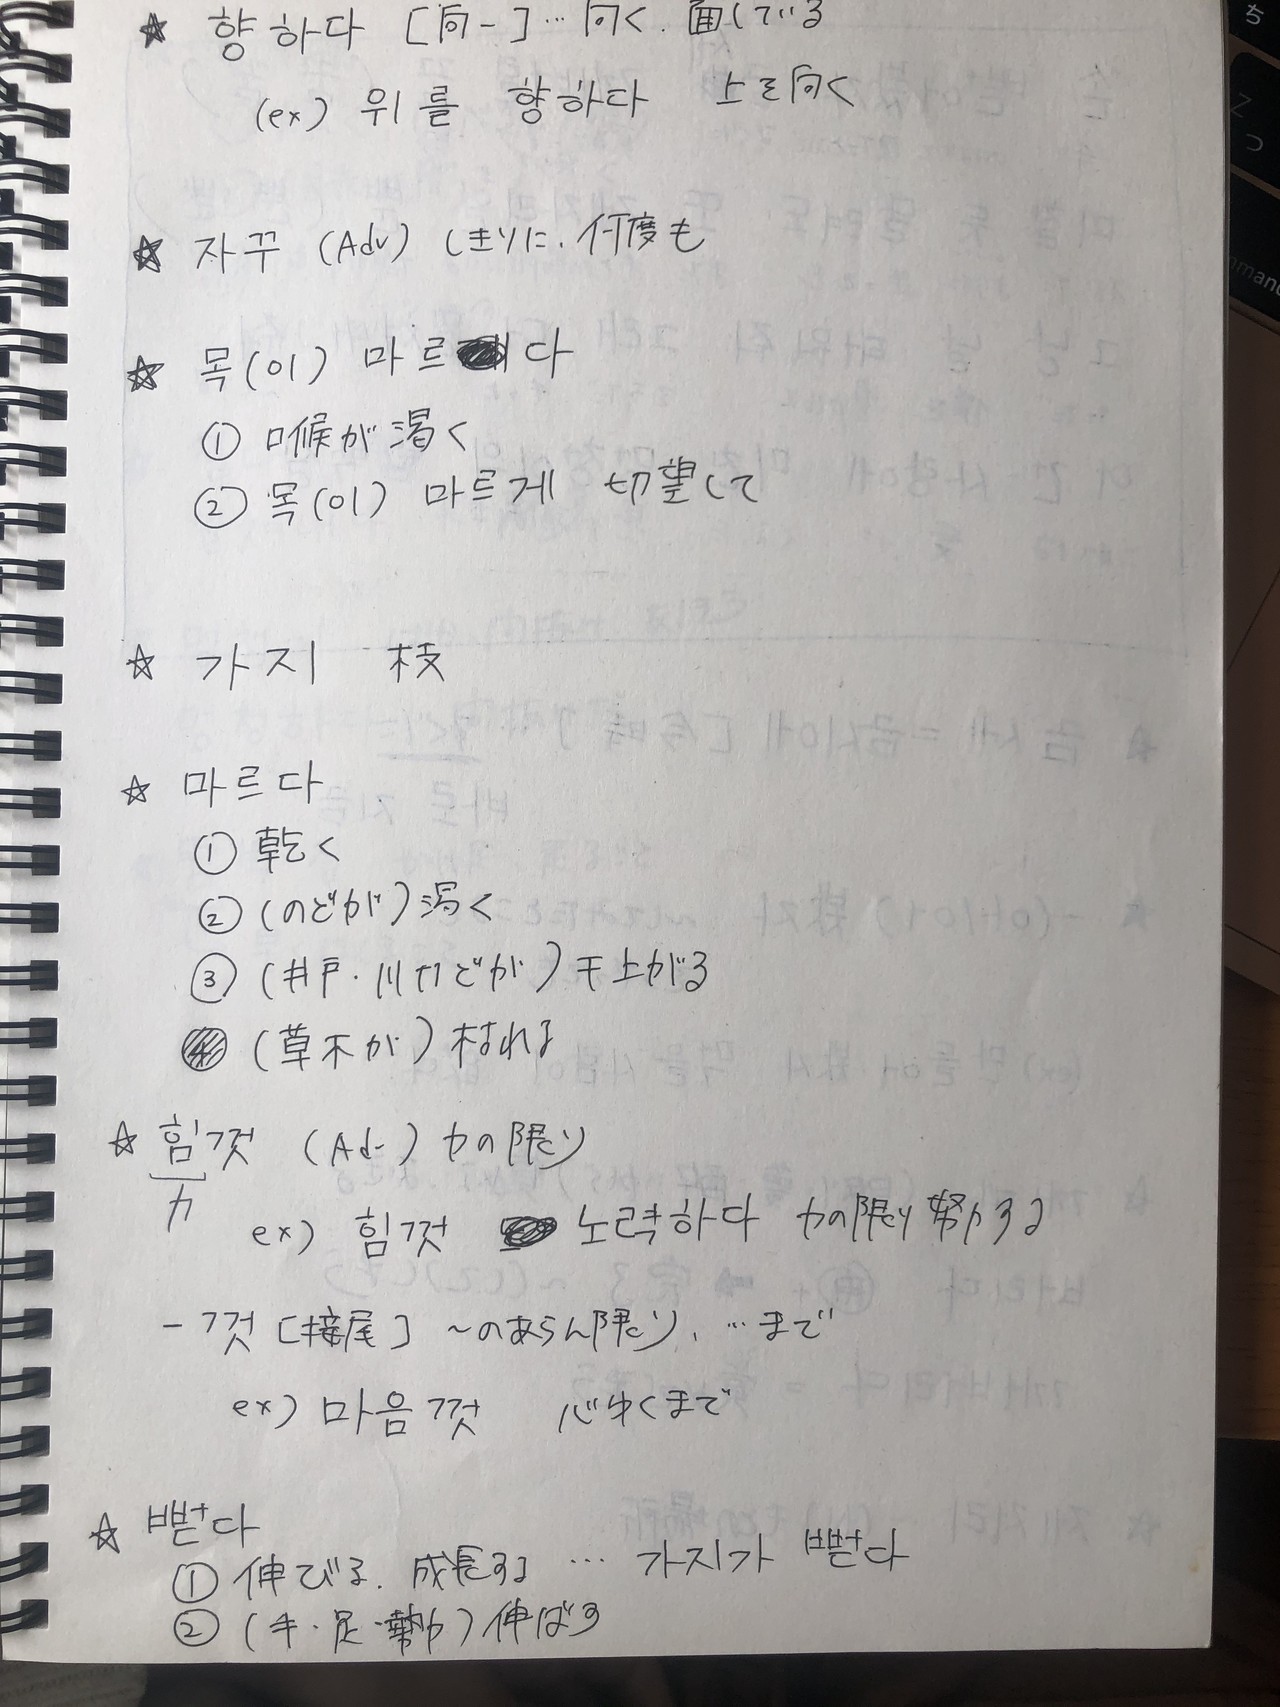 ☆ 향하다 [向-] … 向く. 面している
(ex) 위를 향하다 上を向く
☆ 자꾸 (Adv) しきりに、何度も
☆ 목(이) 마르다
① 喉が渇く
② 목(이) 마르게 切望して
☆ 가지 枝
☆ 마르다
① 乾く
② (のどが) 渇く
③ (井戸・川などが) 干上がる
④ (草木が) 枯れる
☆ 힘껏 (Adv) 力の限り
力
ex) 힘껏 노력하다 力の限り努力する
- 껏 [接尾] ~のあらん限り、…まで
ex) 마음껏 心ゆくまで
☆ 뻗다
① 伸びる. 成長する … 가지가 뻗다
② (手・足・勢力) 伸ばす